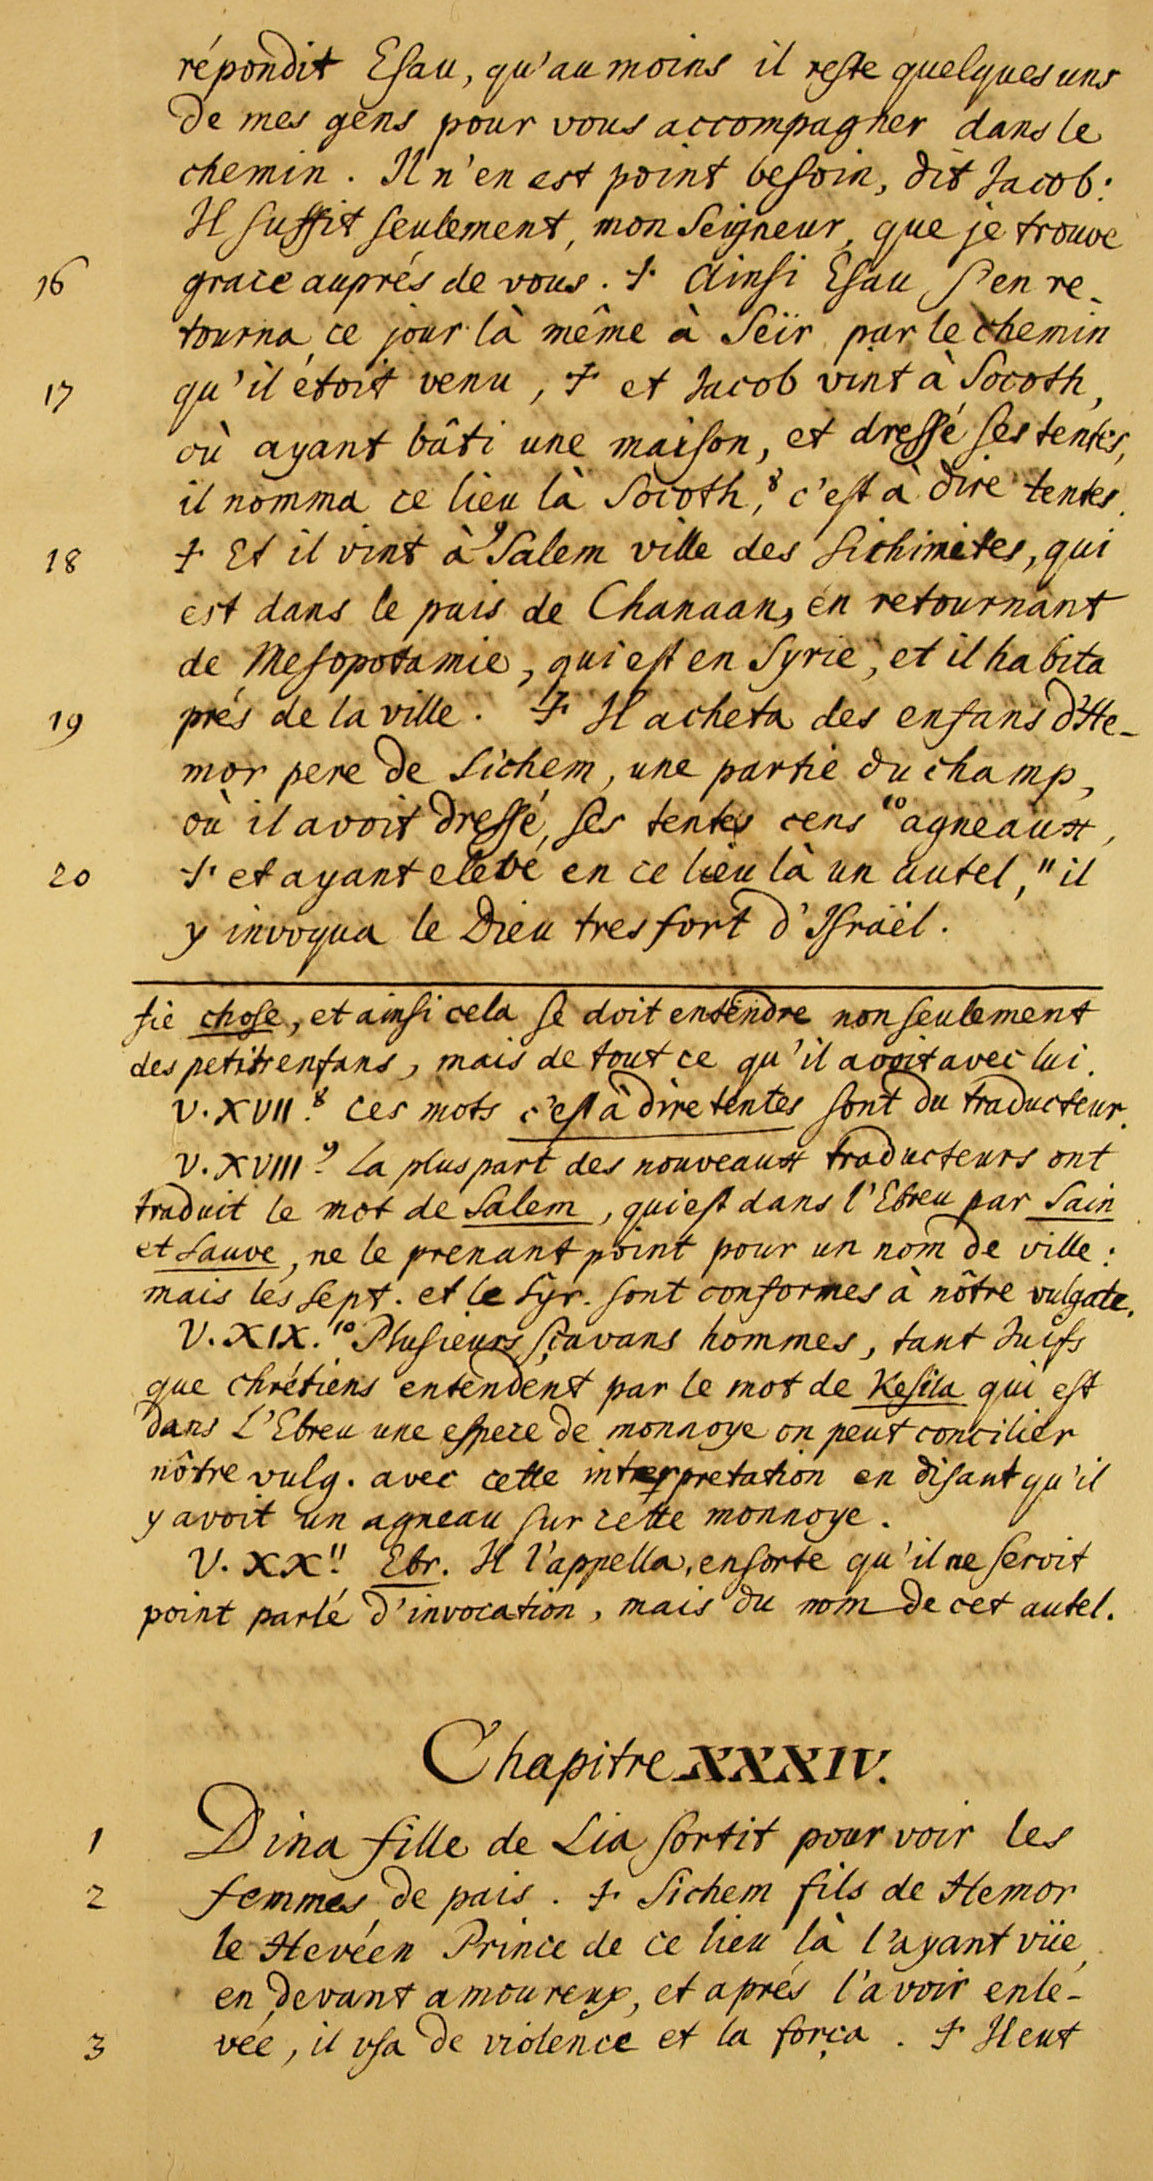 répondit Esau, qu'au moins il reste quelques uns
de mes gens pour vous accompagner dans le
chemin. Il n'en est point besoin, dit Jacob:
Il suffit seulement, mon Seigneur, que je trouve
16 grace auprés de vous. + Ainsi Esau s'en re-
tourna ce jour là même à Seïr par le chemin
17 qu'il étoit venu, + et Jacob vint à Socoth,
où ayant bâti une maison, et dressé ses tentes,
il nomma ce lieu là Socoth,8 c'est à dire tentes.
18 + Et il vint à 9Salem ville des Sichimites, qui
est dans le païs de Chanaan, en retournant
de Mesopotamie, qui est en Syrie, et il habita
19 prés de la ville. + Il acheta des enfans d'He-
mor pere de Sichem, une partie du champ,
où il avoit dressé, ses tentes cens 10agneaux,
20 + et ayant elevé en ce lieu là un autel,11 il
y invoqua le Dieu tres fort d'Israël.
fie chose, et ainsi cela se doit entendre non seulement
des petits enfans, mais de tout ce qu'il avoit avec lui.
V. XVII.8 ces mots c'est à dire tentes sont du traducteur.
V. XVIII.9 La pluspart des nouveaux traducteurs ont
traduit le mot de Salem, qui est dans l'Ebreu par Sain
et Sauve, ne le prenant point pour un nom de ville:
mais les sept. et le Syr. sont conformes à nôtre vulgate.
V. XIX.10 Plusieurs sçavans hommes, tant Juifs
que chrétiens entendent par le mot de Kesita qui est
dans L'Ebreu une espece de monnoye on peut concilier
nôtre vulg. avec cette interpretation en disant qu'il
y avoit un agneau sur cette monnoye.
V. XX.11 Ebr. Il l'appella, ensorte qu'il ne seroit
point parlé d'invocation, mais du nom de cet autel.
Chapitre XXXIV.
1 Dina fille de Lia sortit pour voir les
2 femmes de païs. + Sichem fils de Hemor
le Hevéen Prince de ce lieu là l'ayant vüe,
en devant amoureux, et aprés l'avoir enle-
3 vée, il usa de violence et la força. + Il eut